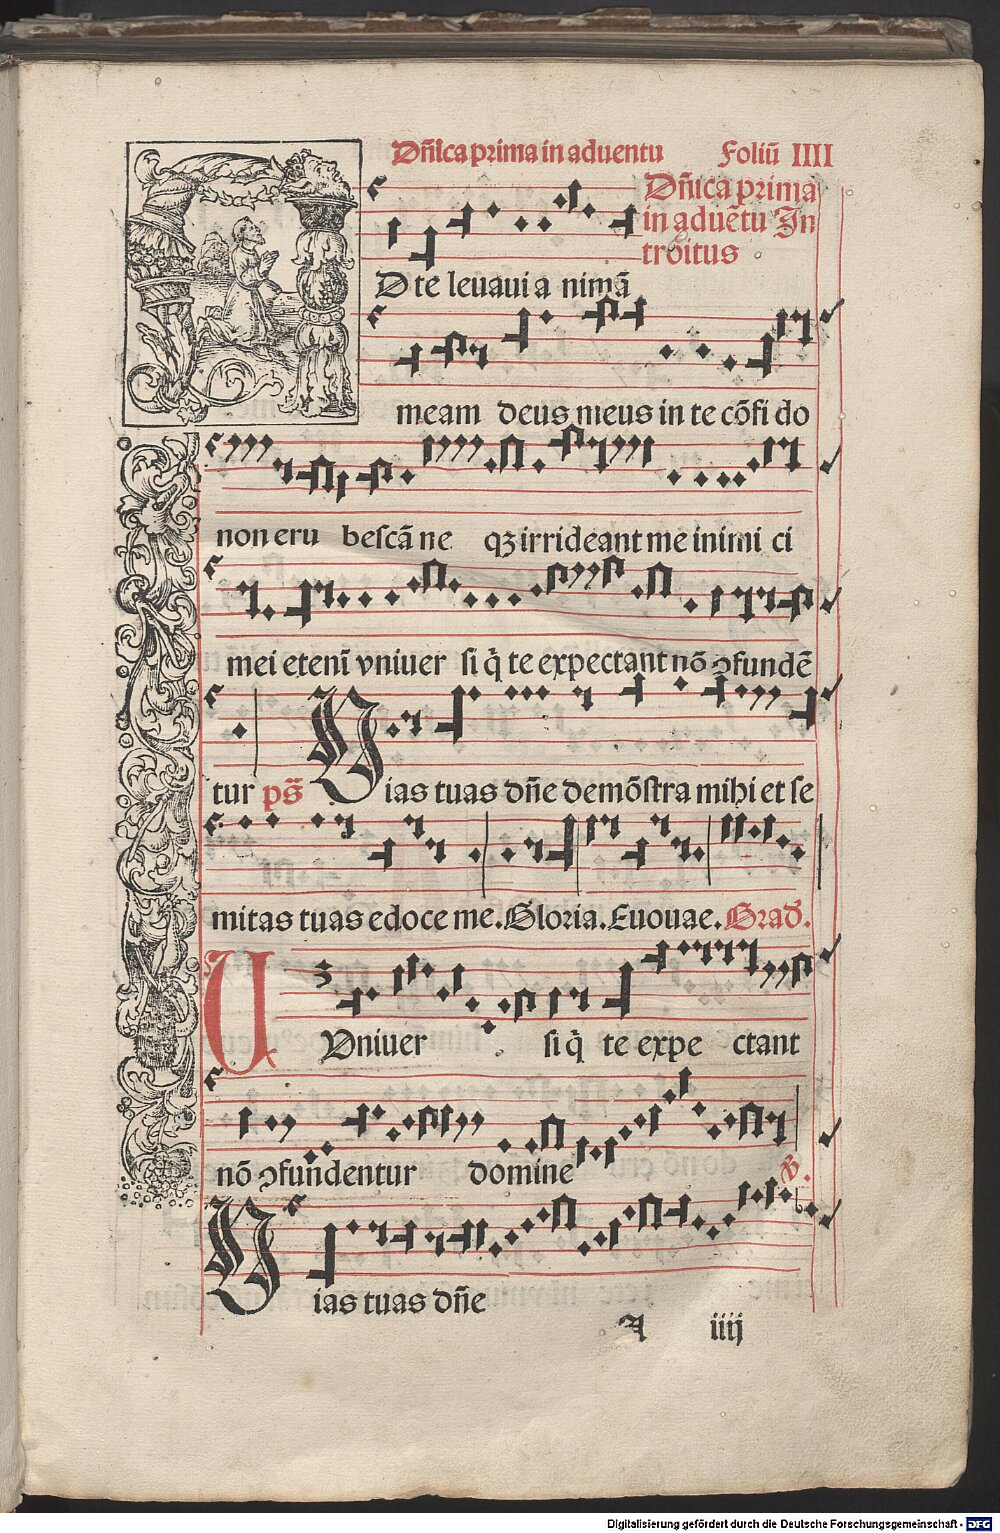 Dñica prima in aduentu Foliū IIII
Dñica prima
in aduētu In
troitus
AD te leuaui a nimā
meam deus meus in te cōfi do
non eru bescā ne qꝫ irrideant me inimi ci
mei etenī vniuer si q̄ te expectant nō ꝯfundē
tur ps̄ Vias tuas dñe demōstra mihi et se
mitas tuas edoce me. Gloria. Euouae. Grad̄.
Vniuer si q̄ te expe ctant
nō ꝯfundentur domine
℣.
Vias tuas dñe
A iiij
Digitalisierung gefördert durch die Deutsche Forschungsgemeinschaft - DFG